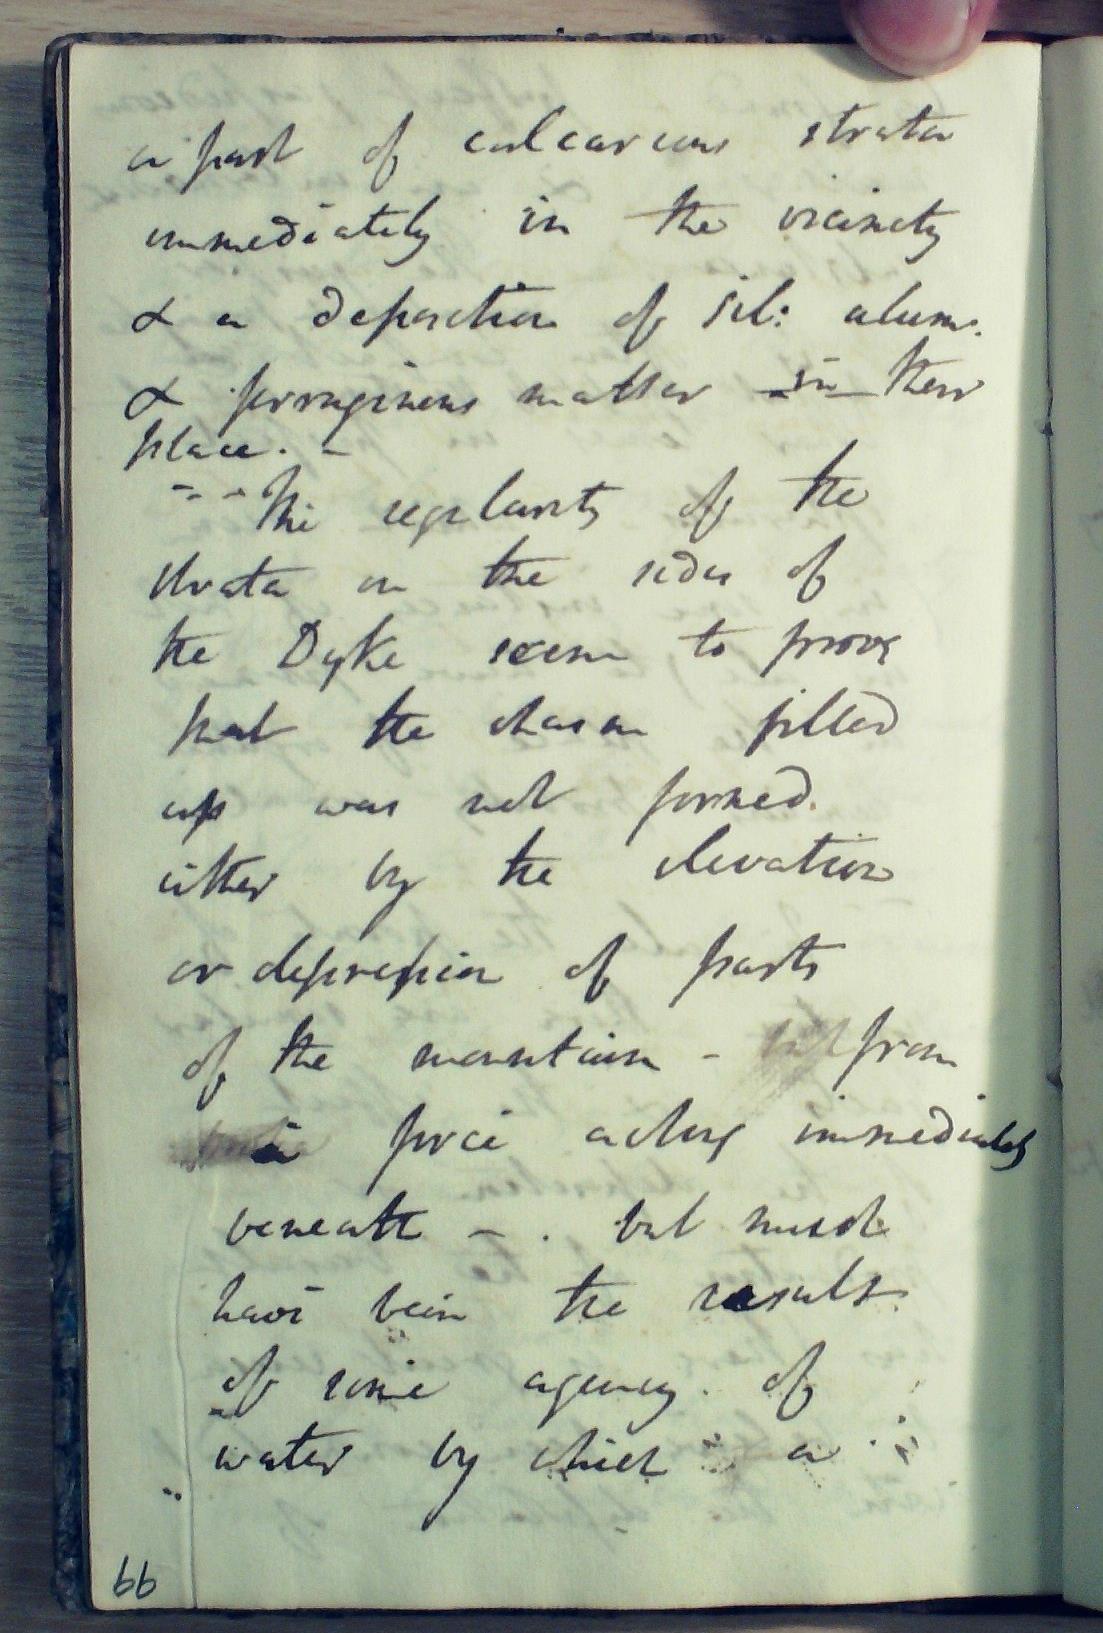 a part of calcareous strata
immediately in the vicinity
& a deposition of sil: alum.
& ferruginous matter in their
place. -
-- - The regularity of the
strata on the sides of
the Dyke seem to prove
that the chasm filled
up was not formed
either by the elevation
or depression of parts
of the mountain - from
a force acting immediately
beneath - . but must
have been the result
of some agency of
water by which a
66